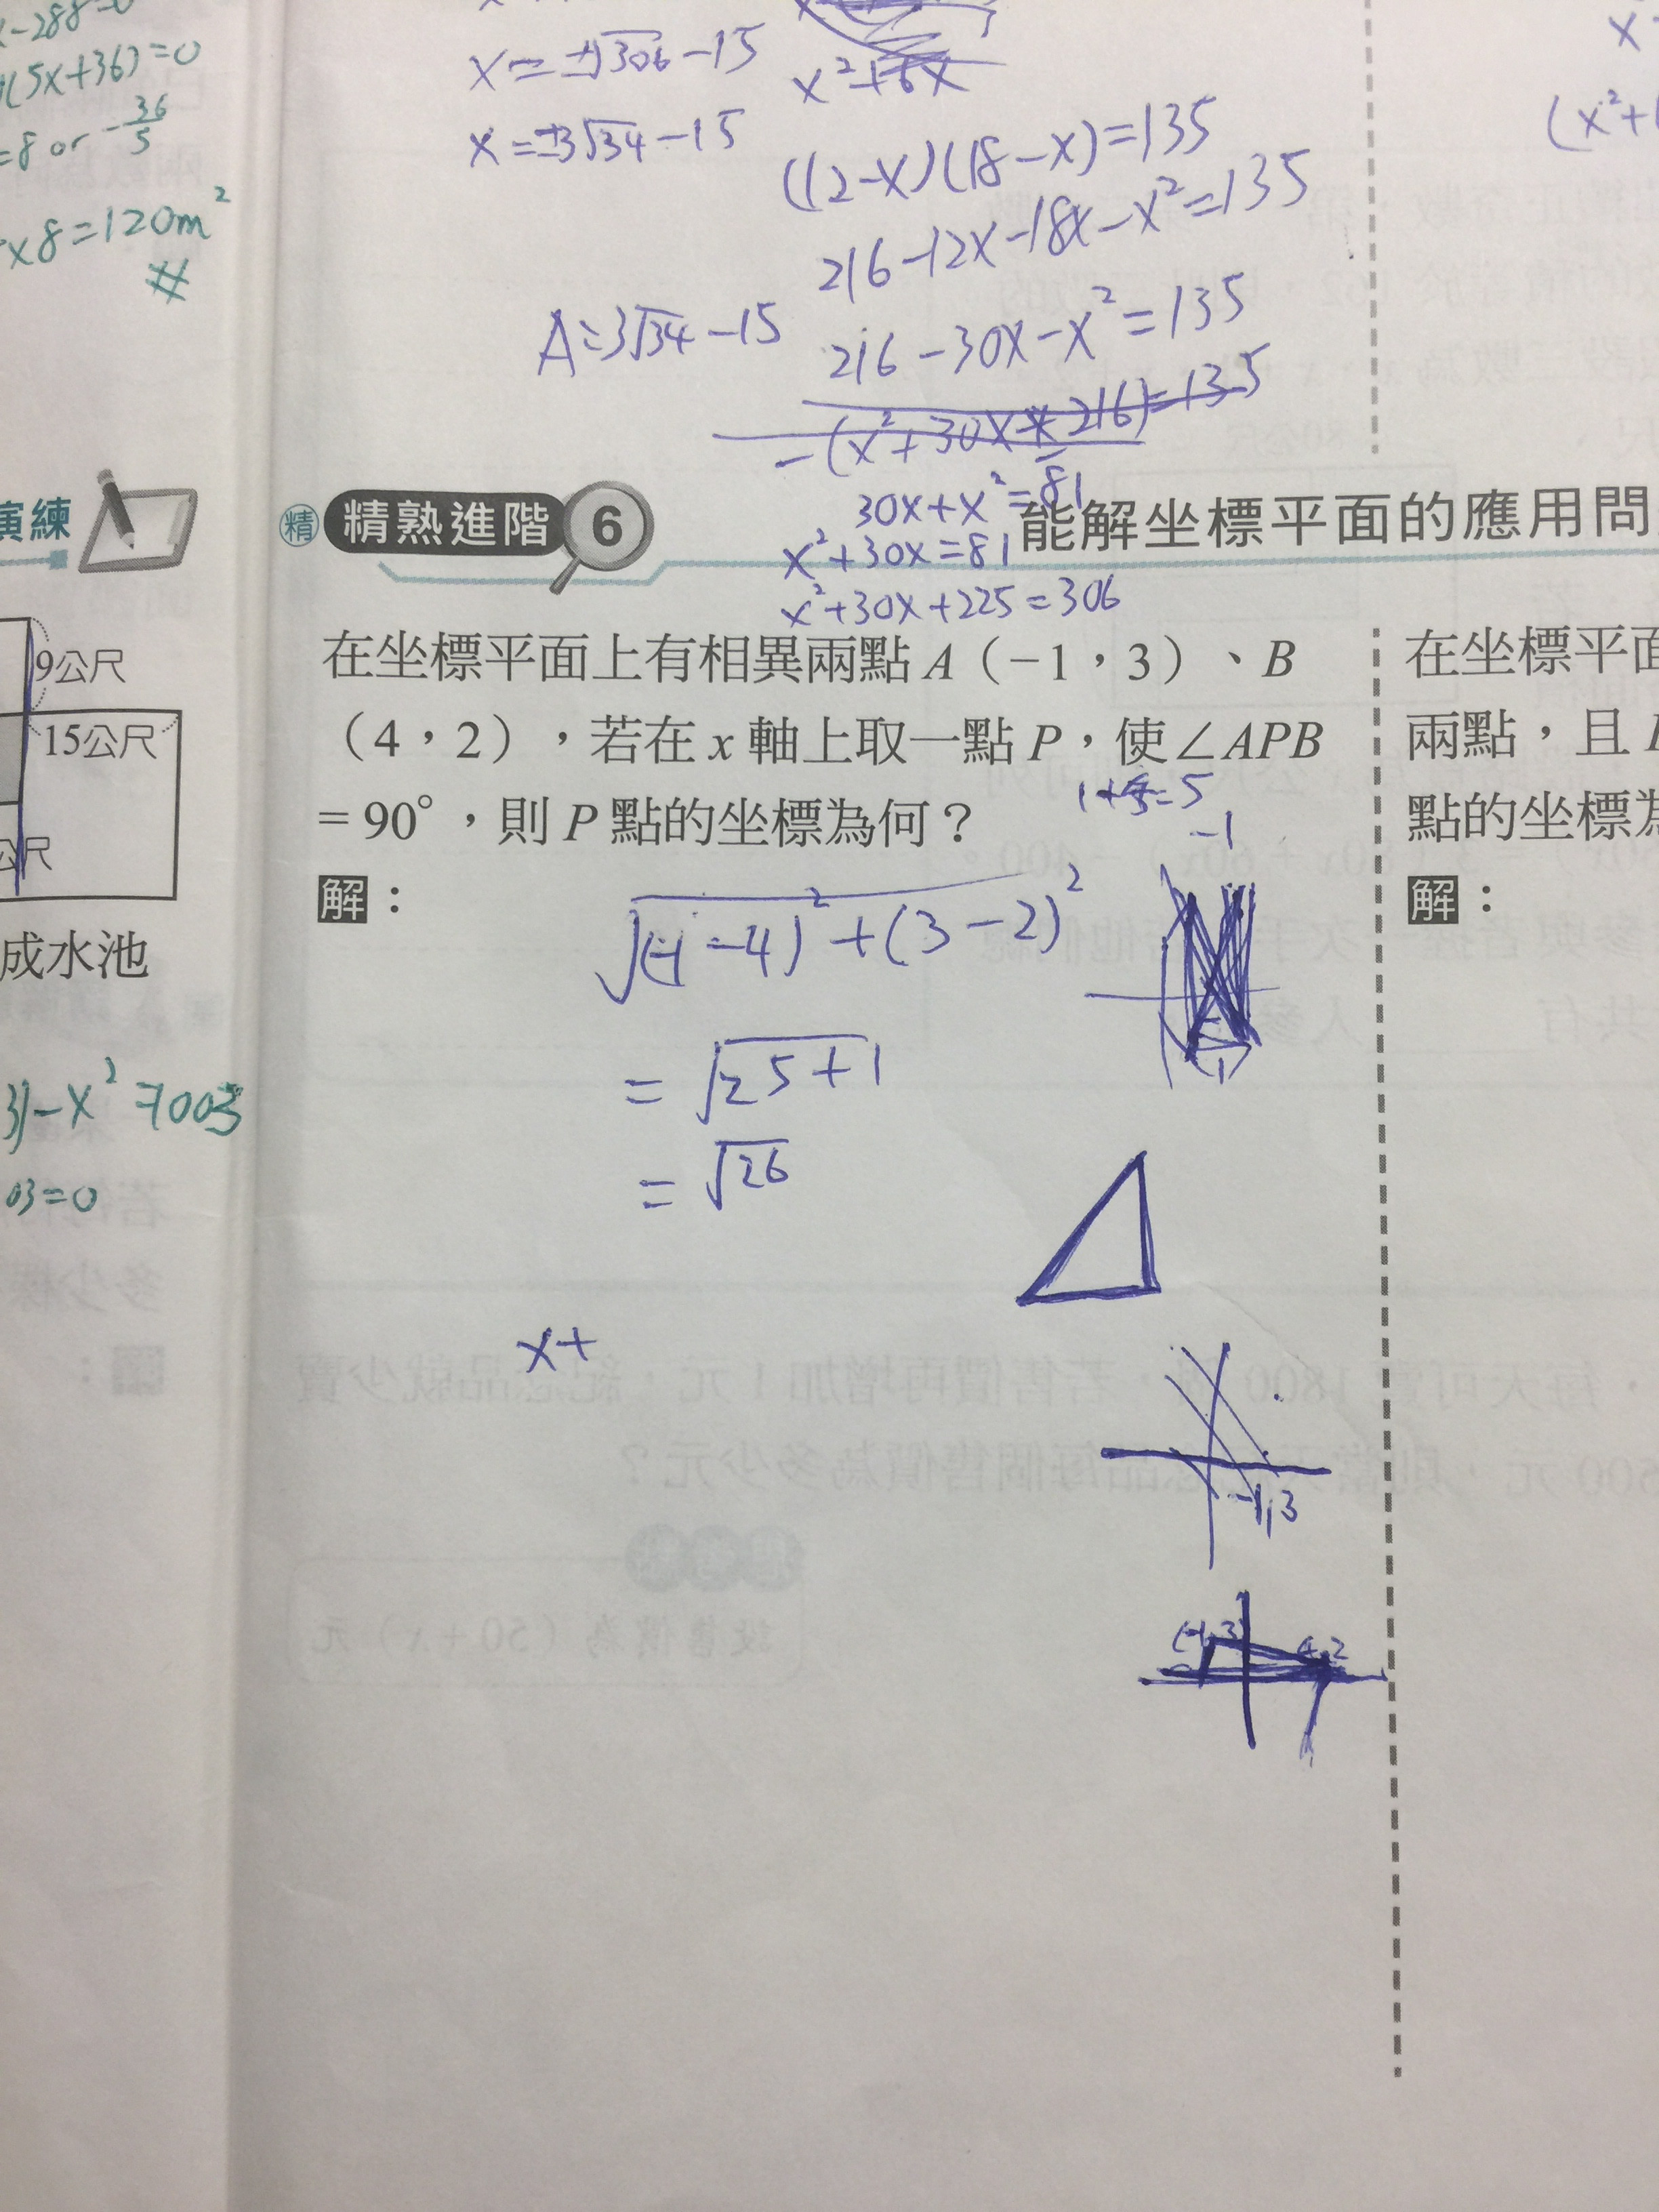 x-288=0
(5x+36)=0
=8 or -36/5
x8=120m²
#
x=±√306-15
x=±3√34-15
A=3√34-15
x²+6x
(12-x)(18-x)=135
216-12x-18x-x²=135
216-30x-x²=135
30x+x²=81
x²+30x=81
x²+30x+225=306
演練
精 精熟進階 6 能解坐標平面的應用問
9公尺
15公尺
公尺
成水池
)-x²=1003
03=0
在坐標平面上有相異兩點 A（−1，3）、B
（4，2），若在 x 軸上取一點 P，使∠APB
= 90°，則 P 點的坐標為何？
1+4=5
-1
解：
√(-1-4)²+(3-2)²
=√25+1
=√26
x+
-1,3
(-1,3)
4,2
在坐標平面
兩點，且
點的坐標為
解：